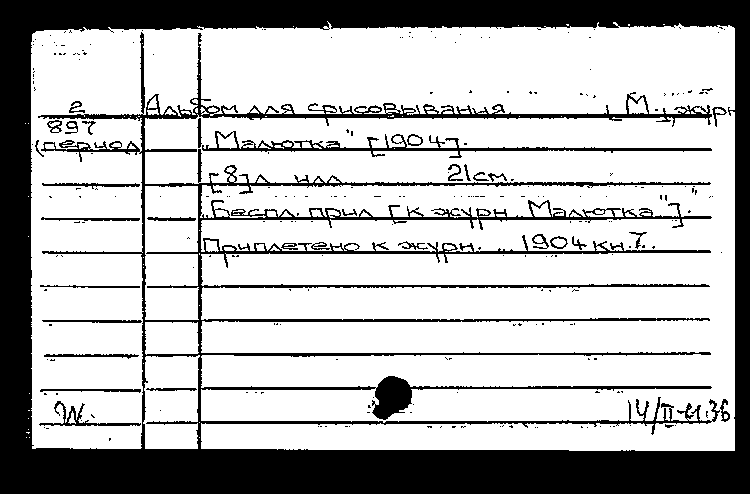 2 Альбом для срисовывания. [М.], журн
897 (период „Малютка" [1904].
[8] л илл 21 см.
„Беспл. прил. [к журн. „Малютка"]."
Приплетено к журн. ... 1904 кн. 7.
14/II-41.36